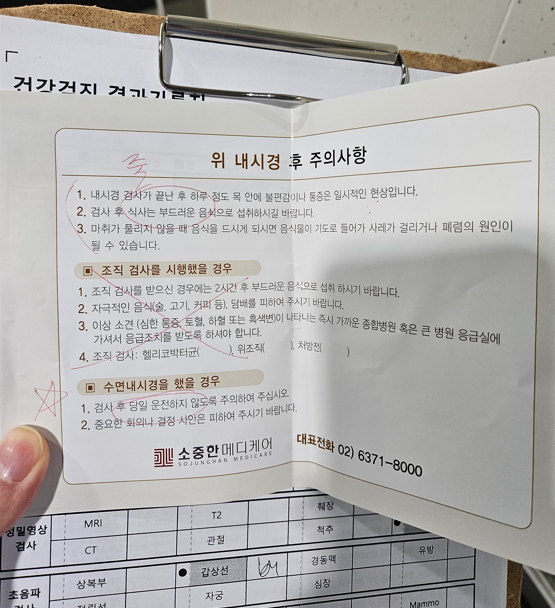 건강검진 결과기록지
위 내시경 후 주의사항
죽
1. 내시경 검사가 끝난 후 하루 정도 목 안에 불편감이나 통증은 일시적인 현상입니다.
2. 검사 후 식사는 부드러운 음식으로 섭취하시길 바랍니다.
3. 마취가 풀리지 않을 때 음식을 드시게 되시면 음식물이 기도로 들어가 사레가 걸리거나 폐렴의 원인이
될 수 있습니다.
▣ 조직 검사를 시행했을 경우
1. 조직 검사를 받으신 경우에는 2시간 후 부드러운 음식으로 섭취 하시기 바랍니다.
2. 자극적인 음식(술, 고기, 커피 등), 담배를 피하여 주시기 바랍니다.
3. 이상 소견 (심한 통증, 토혈, 하혈 또는 흑색변)이 나타나는 즉시 가까운 종합병원 혹은 큰 병원 응급실에
가셔서 응급조치를 받도록 하셔야 합니다.
4. 조직 검사: 헬리코박터균( ), 위조직( ), 처방전( )
▣ 수면내시경을 했을 경우
1. 검사 후 당일 운전하지 않도록 주의하여 주십시오.
2. 중요한 회의나 결정 사안은 피하여 주시기 바랍니다.
소중한메디케어
SOJUNGHAN MEDICARE
대표전화 02) 6371-8000
정밀영상
검사
MRI
T2
췌장
CT
관절
척추
초음파
상복부
● 갑상선
경동맥
유방
자궁
심장
Mammo